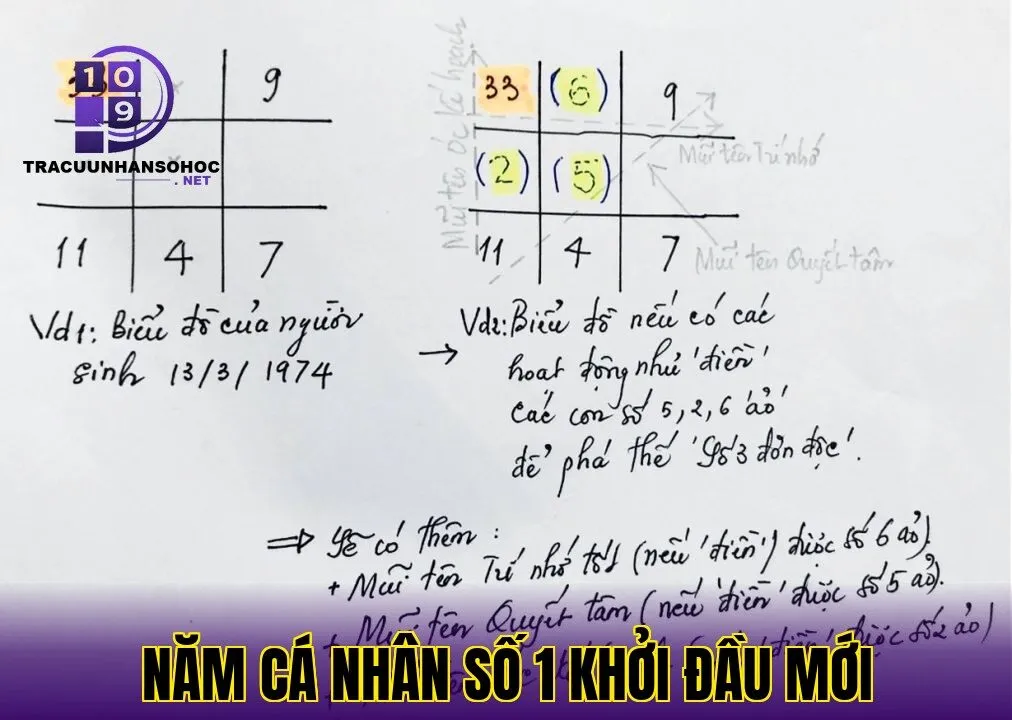 33 9
109
TRACUUNHANSOHOC
.NET
11 4 7
Vd1: Biểu đồ của người
sinh 13/3/1974
Mũi tên óc kế hoạch
33 (6) 9
(2) (5)
11 4 7
Mũi tên Trí nhớ
Mũi tên Quyết tâm
→ Vd2: Biểu đồ nếu có các
hoạt động như 'điền'
các con số 5, 2, 6 'ảo'
để phá thế 'Số 3 đơn độc'.
⇒ Sẽ có thêm:
+ Mũi tên Trí nhớ tốt (nếu 'điền' được số 6 ảo).
+ Mũi tên Quyết tâm (nếu 'điền' được số 5 ảo).
'điền' được số 2 ảo)
NĂM CÁ NHÂN SỐ 1 KHỞI ĐẦU MỚI